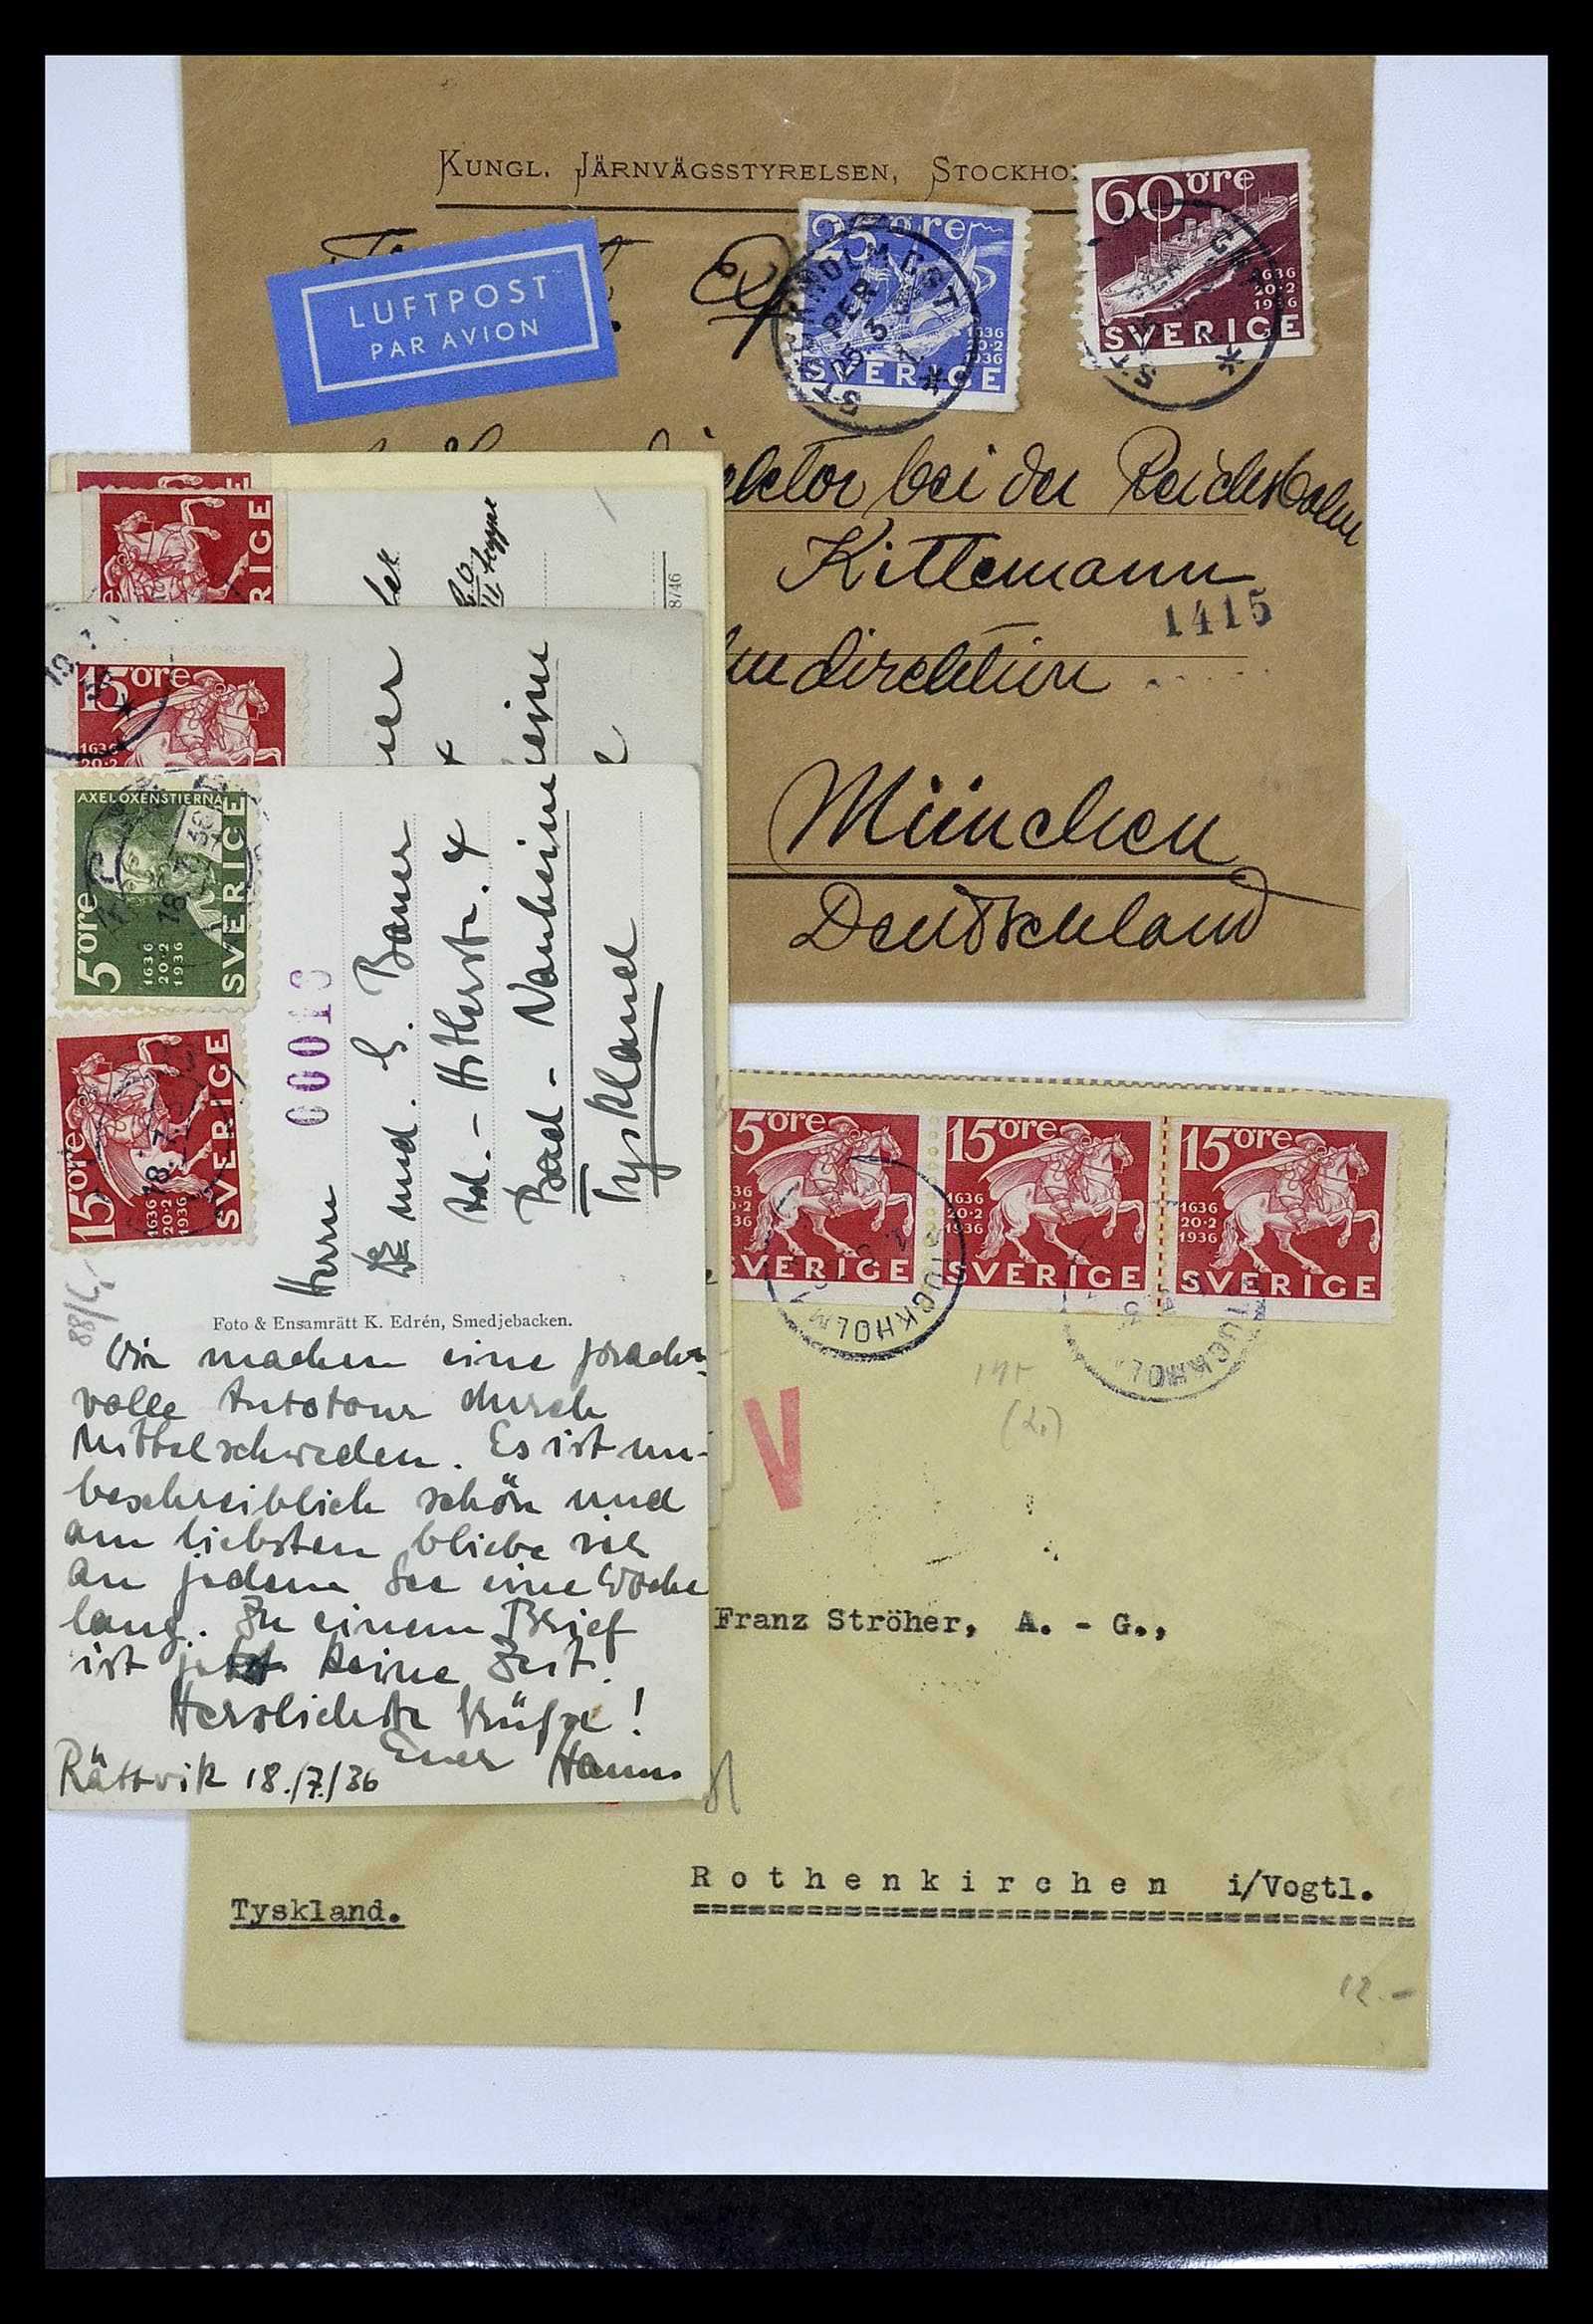 KUNGL. JÄRNVÄGSSTYRELSEN, STOCKHO
LUFTPOST
PAR AVION
25 öre
1636
20·2
1936
SVERIGE
60 öre
1636
20·2
1936
SVERIGE
bei der Reichsbahn
Kittemann
1415
direktion
München
Deutschland
RIGE
8/46
15 öre
1636
20·2
AXEL OXENSTIERNA
5 öre
1636
20·2
1936
SVERIGE
15 öre
1636
20·2
1936
SVERIGE
00013
Herrn
und. G. Bauer
Bad - Nauheim
Tyskland
88/
Foto & Ensamrätt K. Edrén, Smedjebacken.
Wir machen eine pracht-
volle Autotour durch
Mittelschweden. Es ist un-
beschreiblich schön und
am liebsten bliebe
an jedem See eine Woche
lang. Zu einem Brief
ist jetzt keine Zeit.
Herzlichste Grüße!
Euer Hanns
Rättvik 18./7./36
5 öre
36
20·2
36
VERIGE
15 öre
1636
20·2
1936
SVERIGE
15 öre
1636
20·2
1936
SVERIGE
STOCKHOLM
STOCKHOLM
(2.)
V
Franz Ströher, A. - G.,
Rothenkirchen i/Vogtl.
Tyskland.
12.-